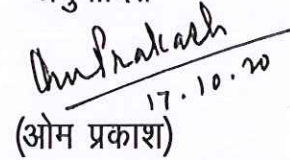 Om Prakash
17.10.20
(ओम प्रकाश)